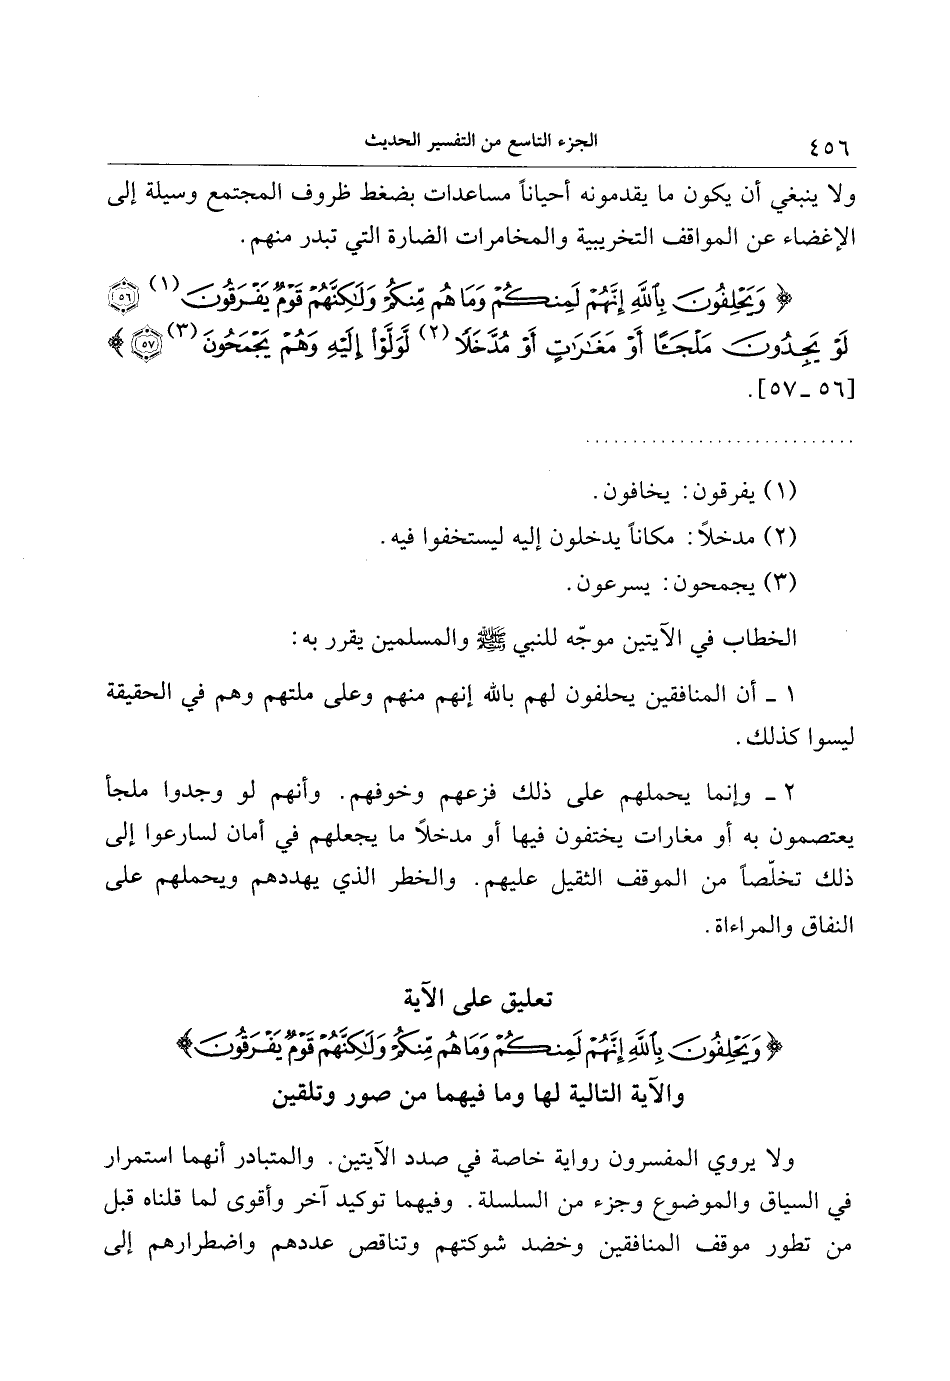 ٤٥٦ الجزء التاسع من التفسير الحديث
ولا ينبغي أن يكون ما يقدمونه أحياناً مساعدات بضغط ظروف المجتمع وسيلة إلى
الإغضاء عن المواقف التخريبية والمخامرات الضارة التي تبدر منهم.
﴿ وَيَحْلِفُونَ بِٱللَّهِ إِنَّهُمْ لَمِنكُمْ وَمَا هُم مِّنكُمْ وَلَٰكِنَّهُمْ قَوْمٌ يَفْرَقُونَ (١) ٥٦
لَوْ يَجِدُونَ مَلْجَـًٔا أَوْ مَغَٰرَٰتٍ أَوْ مُدَّخَلًا (٢) لَّوَلَّوْا۟ إِلَيْهِ وَهُمْ يَجْمَحُونَ (٣) ٥٧ ﴾
[٥٦ ـ ٥٧].
............................
(١) يفرقون: يخافون.
(٢) مدخلاً: مكاناً يدخلون إليه ليستخفوا فيه.
(٣) يجمحون: يسرعون.
الخطاب في الآيتين موجّه للنبي ﷺ والمسلمين يقرر به:
١ ـ أن المنافقين يحلفون لهم بالله إنهم منهم وعلى ملتهم وهم في الحقيقة
ليسوا كذلك.
٢ ـ وإنما يحملهم على ذلك فزعهم وخوفهم. وأنهم لو وجدوا ملجأ
يعتصمون به أو مغارات يختفون فيها أو مدخلاً ما يجعلهم في أمان لسارعوا إلى
ذلك تخلّصاً من الموقف الثقيل عليهم. والخطر الذي يهددهم ويحملهم على
النفاق والمراءاة.
تعليق على الآية
﴿ وَيَحْلِفُونَ بِٱللَّهِ إِنَّهُمْ لَمِنكُمْ وَمَا هُم مِّنكُمْ وَلَٰكِنَّهُمْ قَوْمٌ يَفْرَقُونَ ﴾
والآية التالية لها وما فيهما من صور وتلقين
ولا يروي المفسرون رواية خاصة في صدد الآيتين. والمتبادر أنهما استمرار
في السياق والموضوع وجزء من السلسلة. وفيهما توكيد آخر وأقوى لما قلناه قبل
من تطور موقف المنافقين وخضد شوكتهم وتناقص عددهم واضطرارهم إلى